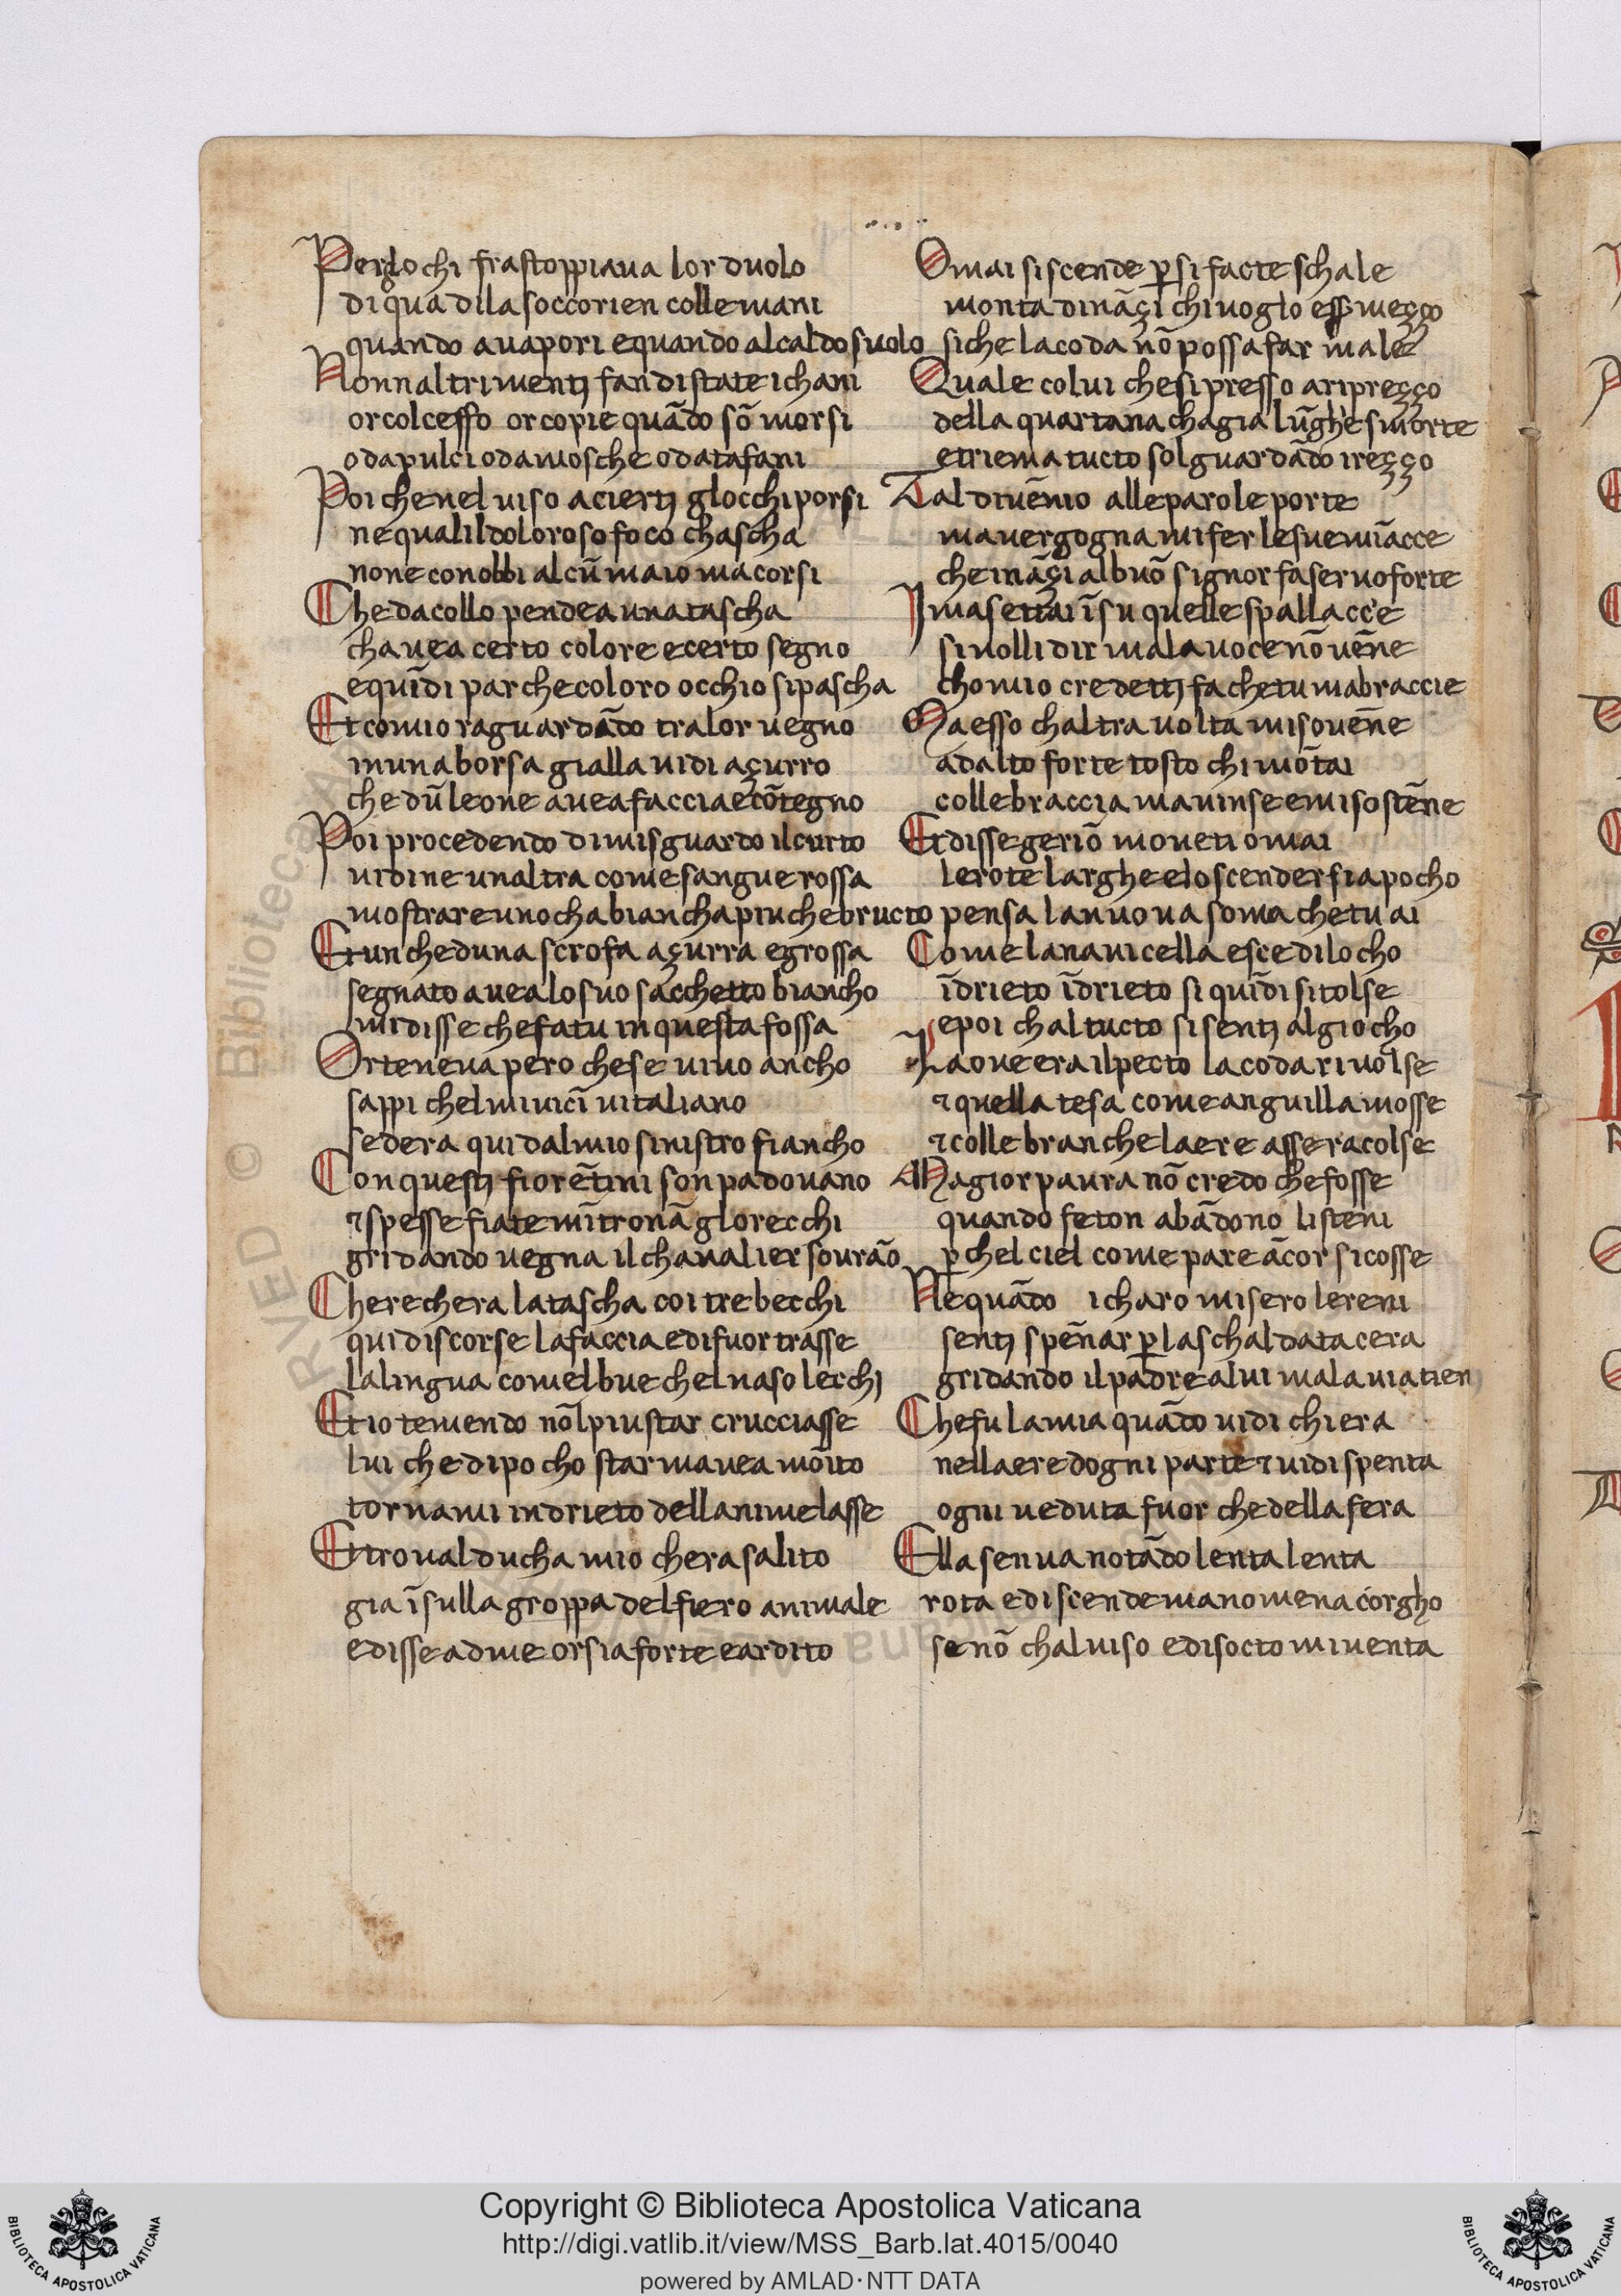 Perglochi frastoppiaua lor duolo
di qua dila soccorien collemani
quando auapori equando alcaldo suolo
Nonnaltrimentj fandistate ichani
orcolceffo orcopie quādo sō morsi
odapulci odamosche odatafani
Poi chenel uiso aciertj glocchi porsi
nequalildoloroso foco chascha
none conobbi alcū maio macorsi
Chedacollo pendea unatascha
chauea certo colore ecerto segno
equīdi par checoloro occhio sipascha
Et comio raguardādo tralor uegno
inunaborsa gialla uidi açurro
che dū leone auea faccia ecōtegno
Poi procedendo dimisguardo ilcurto
uidine unaltra come sangue rossa
mostrare unocha biancha piu chebructo
Et un cheduna scrofa açurra egrossa
segnato auealo suo sacchetto biancho
midisse che fatu in questa fossa
Orteneua pero chese uiuo ancho
sappi chelmiuicī uitaliano
sedera qui dalmio sinistro fiancho
Con questj fiorētini son padouano
⁊ spesse fiate mītronā glorecchi
gridando uegna il chaualier sourāo
Cherechera latascha coi tre becchi
qui discorse lafaccia edifuor trasse
lalingua comelbue chelnaso lecchj
Et io temendo nōlpiustar crucciasse
lui che dipocho star mauea mōito
tornami indrieto dellanimelasse
Et trouai ducha mio cherasalito
gia ī sulla groppa delfiero animale
edisseadme orsia forte eardito
Omai siscende p̱ si facte schale
monta dināçi chiuoglo esse̱ meçço
siche lacoda nō possa far male
Quale colui chesi presso aripreçço
della quartana chagia lūghe smorte
etriema tucto sol guardādo ireçço
Tal diuēnio alle parole porte
ma uergogna mi fer lesue mīacce
che ināçi al buō signor fa seruo forte
I masettai ī su quelle spallacce
si uolli dir mala uoce nō uēne
chomio credettj fa chetu mabraccie
Ma esso chaltra uolta misouēne
adalto forte tosto chi mōtai
colle braccia mauinse emisostēne
Et disse geriō moueti omai
lerote larghe elo scender sia pocho
pensa lanuoua soma chetu ai
Come lanauicella esce diloco
īdrieto īdrieto si quīdi sitolse
epoi chaltucto si sentj algiocho
La oue era ilpecto lacoda riuolse
⁊ quella tesa come anguilla mosse
⁊ colle branche laere asse racolse
Magior paura nō credo che fosse
quando feton abādono listeni
p̱chel ciel come pare ācor sicosse
Ne quādo icharo misero lereni
sentj spēnar p̱ laschaldata cera
gridando il padre alui mala uia tieni
Chefu la mia quādo uidi chiera
nellaere dogni parte ⁊ uidi spenta
ogni ueduta fuor che della fera
Ella senua notādo lenta lenta
rota ediscende manomenacorgho
se nō chaluiso edisocto miuenta
Copyright © Biblioteca Apostolica Vaticana
http://digi.vatlib.it/view/MSS_Barb.lat.4015/0040
powered by AMLAD·NTT DATA
BIBLIOTECA APOSTOLICA VATICANA
BIBLIOTECA APOSTOLICA VATICANA